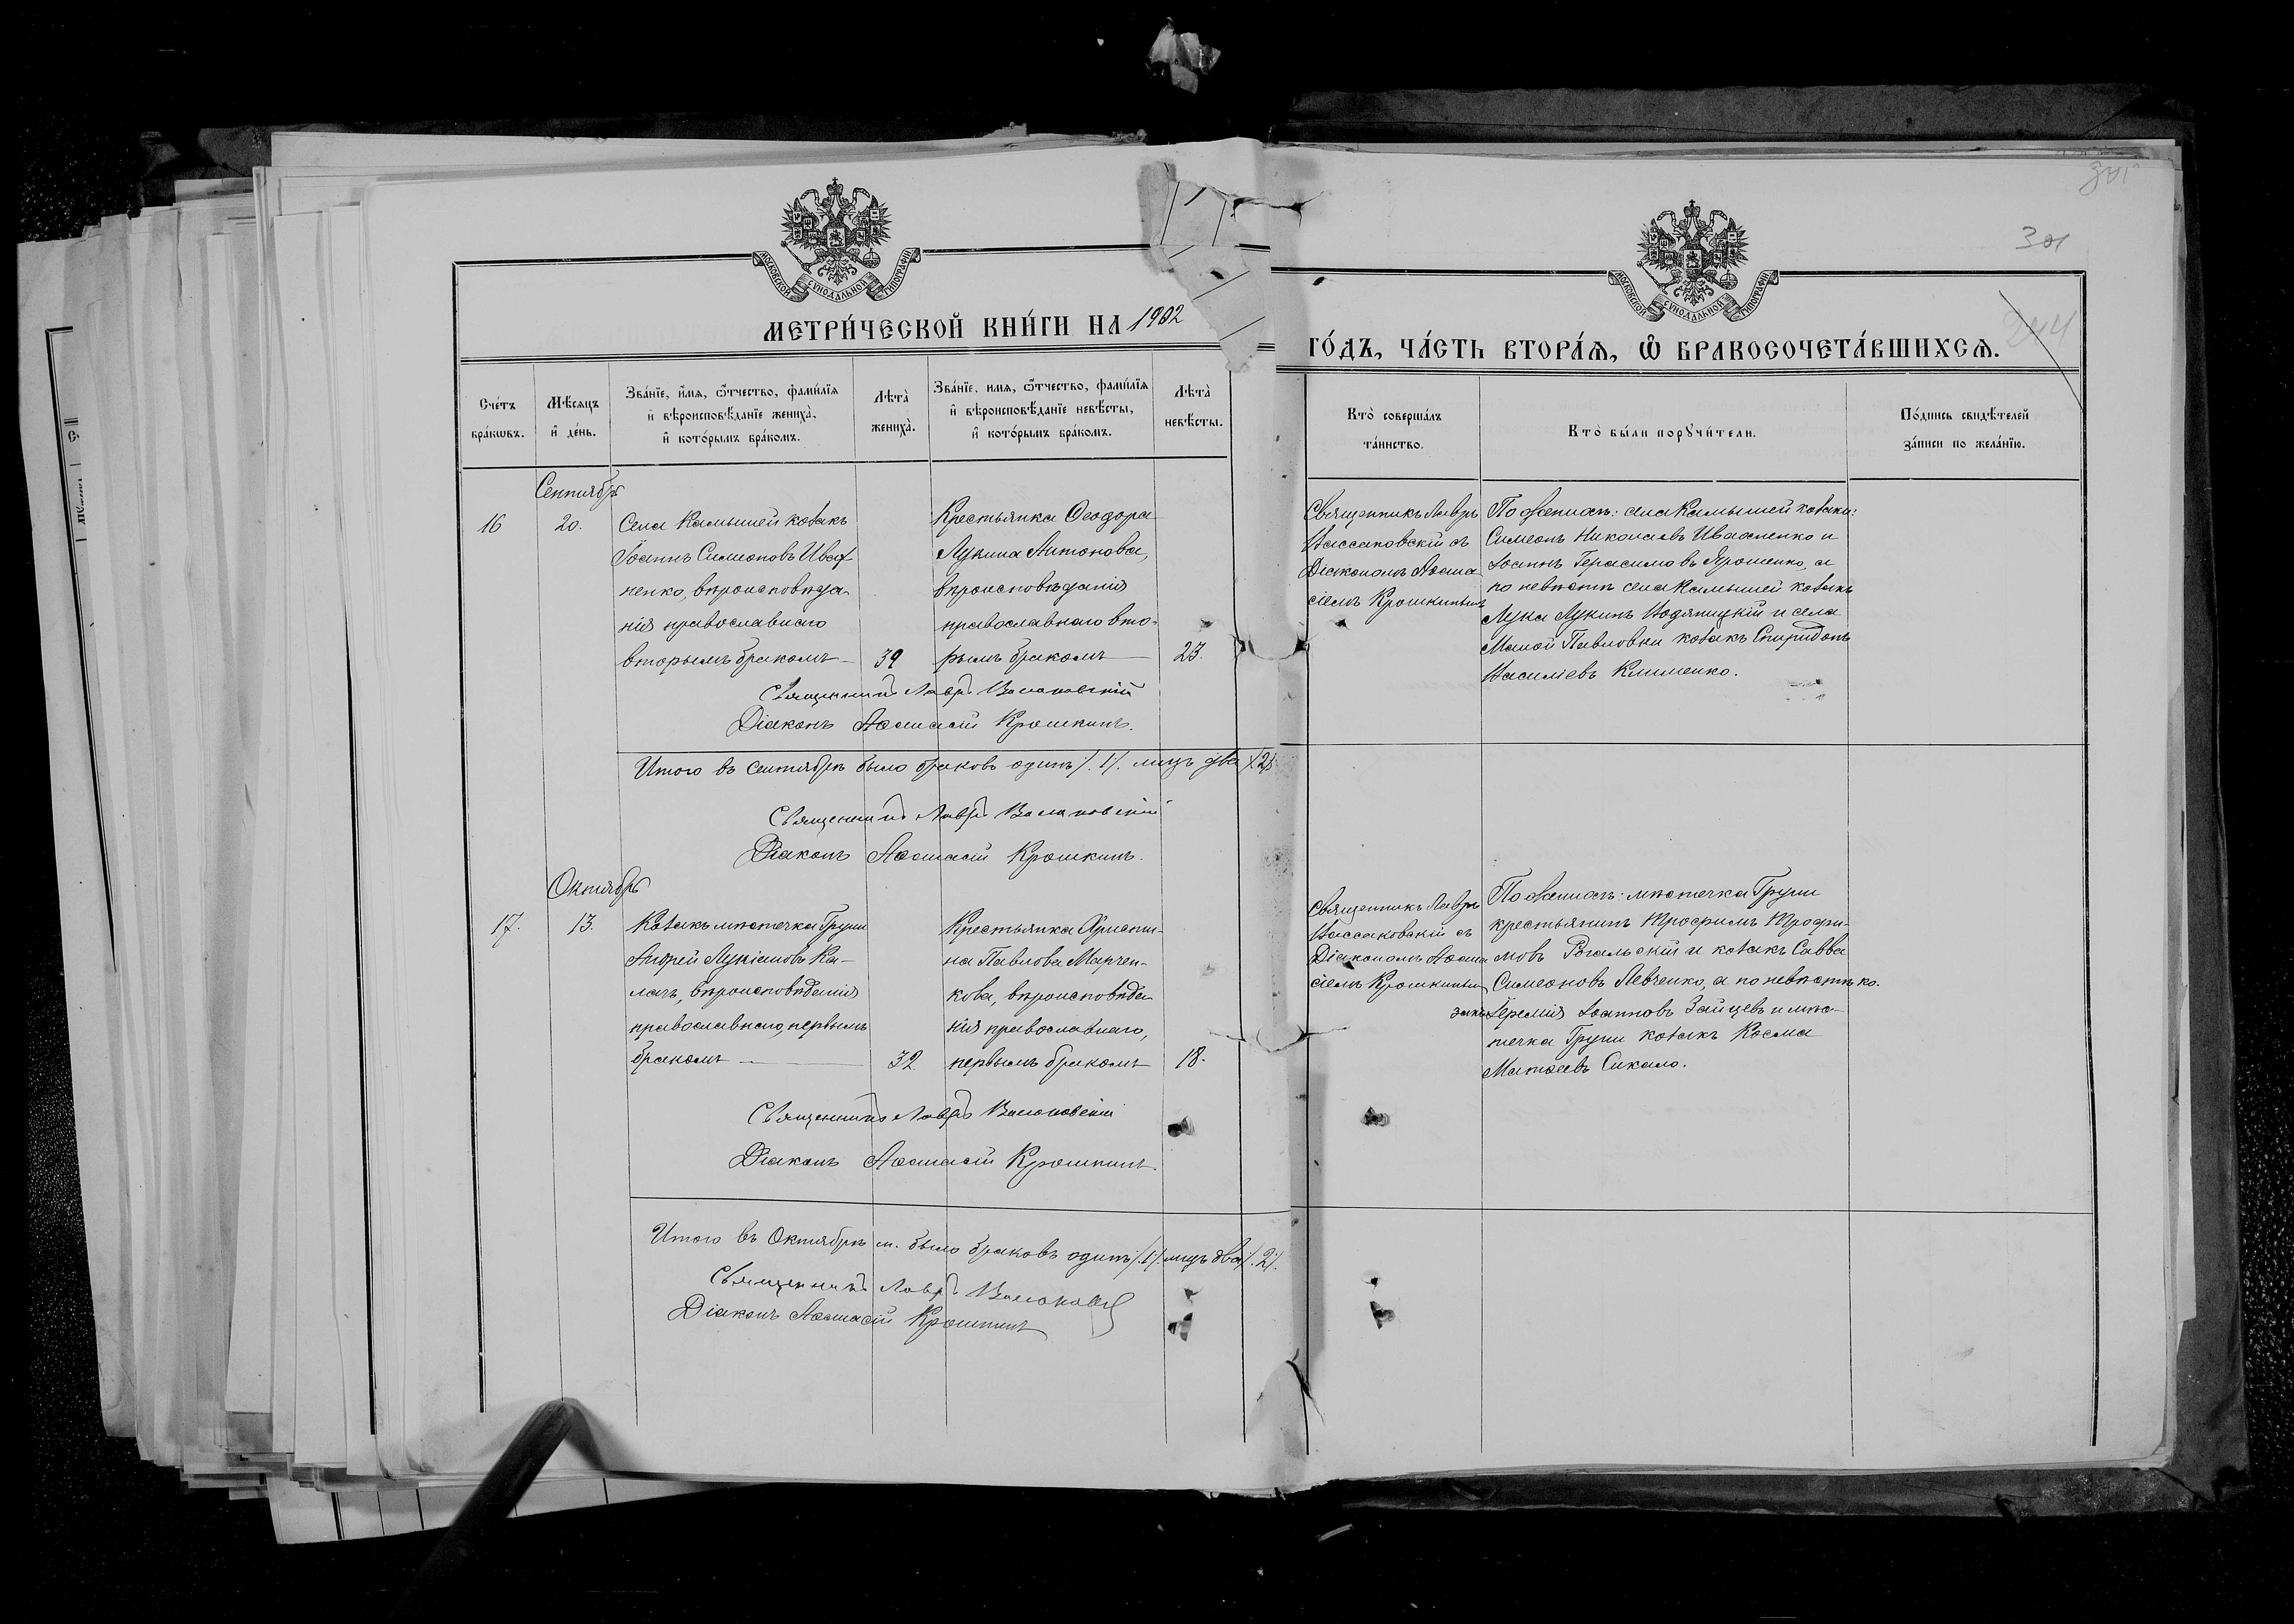 301
МОСКОВСКОЙ СѴНОДАЛЬНОЙ ТИПОГРАФІИ
МОСКОВСКОЙ СѴНОДАЛЬНОЙ ТИПОГРАФІИ
301
244
МЕТРИ́ЧЕСКОЙ КНИ́ГИ НА 1902
ГО́ДЪ, ЧА́СТЬ ВТОРА́Я, Ѽ БРАКОСОЧЕТА́ВШИХСЯ.
Сче́тъ
бра́кѡвъ.
Мѣ́сяцъ
и҆ де́нь.
Зва́нїе, и҆́мя, ѻ҆́тчество, фами́лїя
и҆ вѣроисповѣ́данїе жениха̀,
и҆ кото́рымъ бра́комъ.
Лѣ́та̀
жениха̀.
Зва́нїе, имя, ѻ҆́тчество, фами́лїя
и҆ вѣроисповѣ́данїе невѣ́сты,
и҆ кото́рымъ бра́комъ.
Лѣ́та̀
невѣ́сты.
Кто̀ соверша́лъ
та́инство.
Кто̀ бы́ли порꙋчи́тели.
По́дпись свидѣ́телей
за́писи по жела́нїю.
Сентябрь
16
20.
Села Камышей козакъ
Іоаннъ Симеоновъ Ивах-
ненко, вѣроисповѣда-
нія православнаго
вторымъ бракомъ
39
Крестьянка Ѳеодора
Лукина Антонова,
вѣроисповѣданія
православнаго вто-
рымъ бракомъ
23.
Священникъ Лавръ
Вассаковскій съ
Діакономъ Аѳана
сіемъ Крошкинымъ
По женихѣ: села Камышей козаки:
Симеонъ Николаевъ Ивахненко и
Іоаннъ Герасимовъ Ярошенко, а
по невѣстѣ села Камышей козакъ
Лука Лукинъ Водяницкій и села
Малой Павловки козакъ Спиридонъ
Василіевъ Клименко.
Священникъ Лавръ Вассаковскій
Діаконъ Аѳанасій Крошкинъ.
Итого въ Сентябрѣ было браковъ одинъ /.1/. лицъ два /.2/.
Священникъ Лавръ Вассаковскій
Діаконъ Аѳанасій Крошкинъ.
Октябрь
17.
13.
Козакъ мѣстечка Груни
Андрей Лукіановъ Ка-
лачъ, вѣроисповѣданія
православнаго, первымъ
бракомъ
32
Крестьянка Христи-
на Павлова Марчен-
кова, вѣроисповѣда
нія православнаго,
первымъ бракомъ
18.
Священникъ Лавръ
Вассаковскій съ
Діакономъ Аѳана
сіемъ Крошкинымъ
По женихѣ: мѣстечка Груни
крестьянинъ Трофимъ Трофи-
мовъ Рогальскій и козакъ Савва
Симеоновъ Левченко, а по невѣстѣ ко.
заки Іеремія Іоанновъ Зайцевъ и мѣс-
течка Груни козакъ Косма
Матѳеевъ Сикало.
Священникъ Лавръ Вассаковскій
Діаконъ Аѳанасій Крошкинъ.
Итого въ Октябрѣ м. было браковъ одинъ /.1/. лицъ два /.2/.
Священникъ Лавръ Вассаковскій
Діаконъ Аѳанасій Крошкинъ